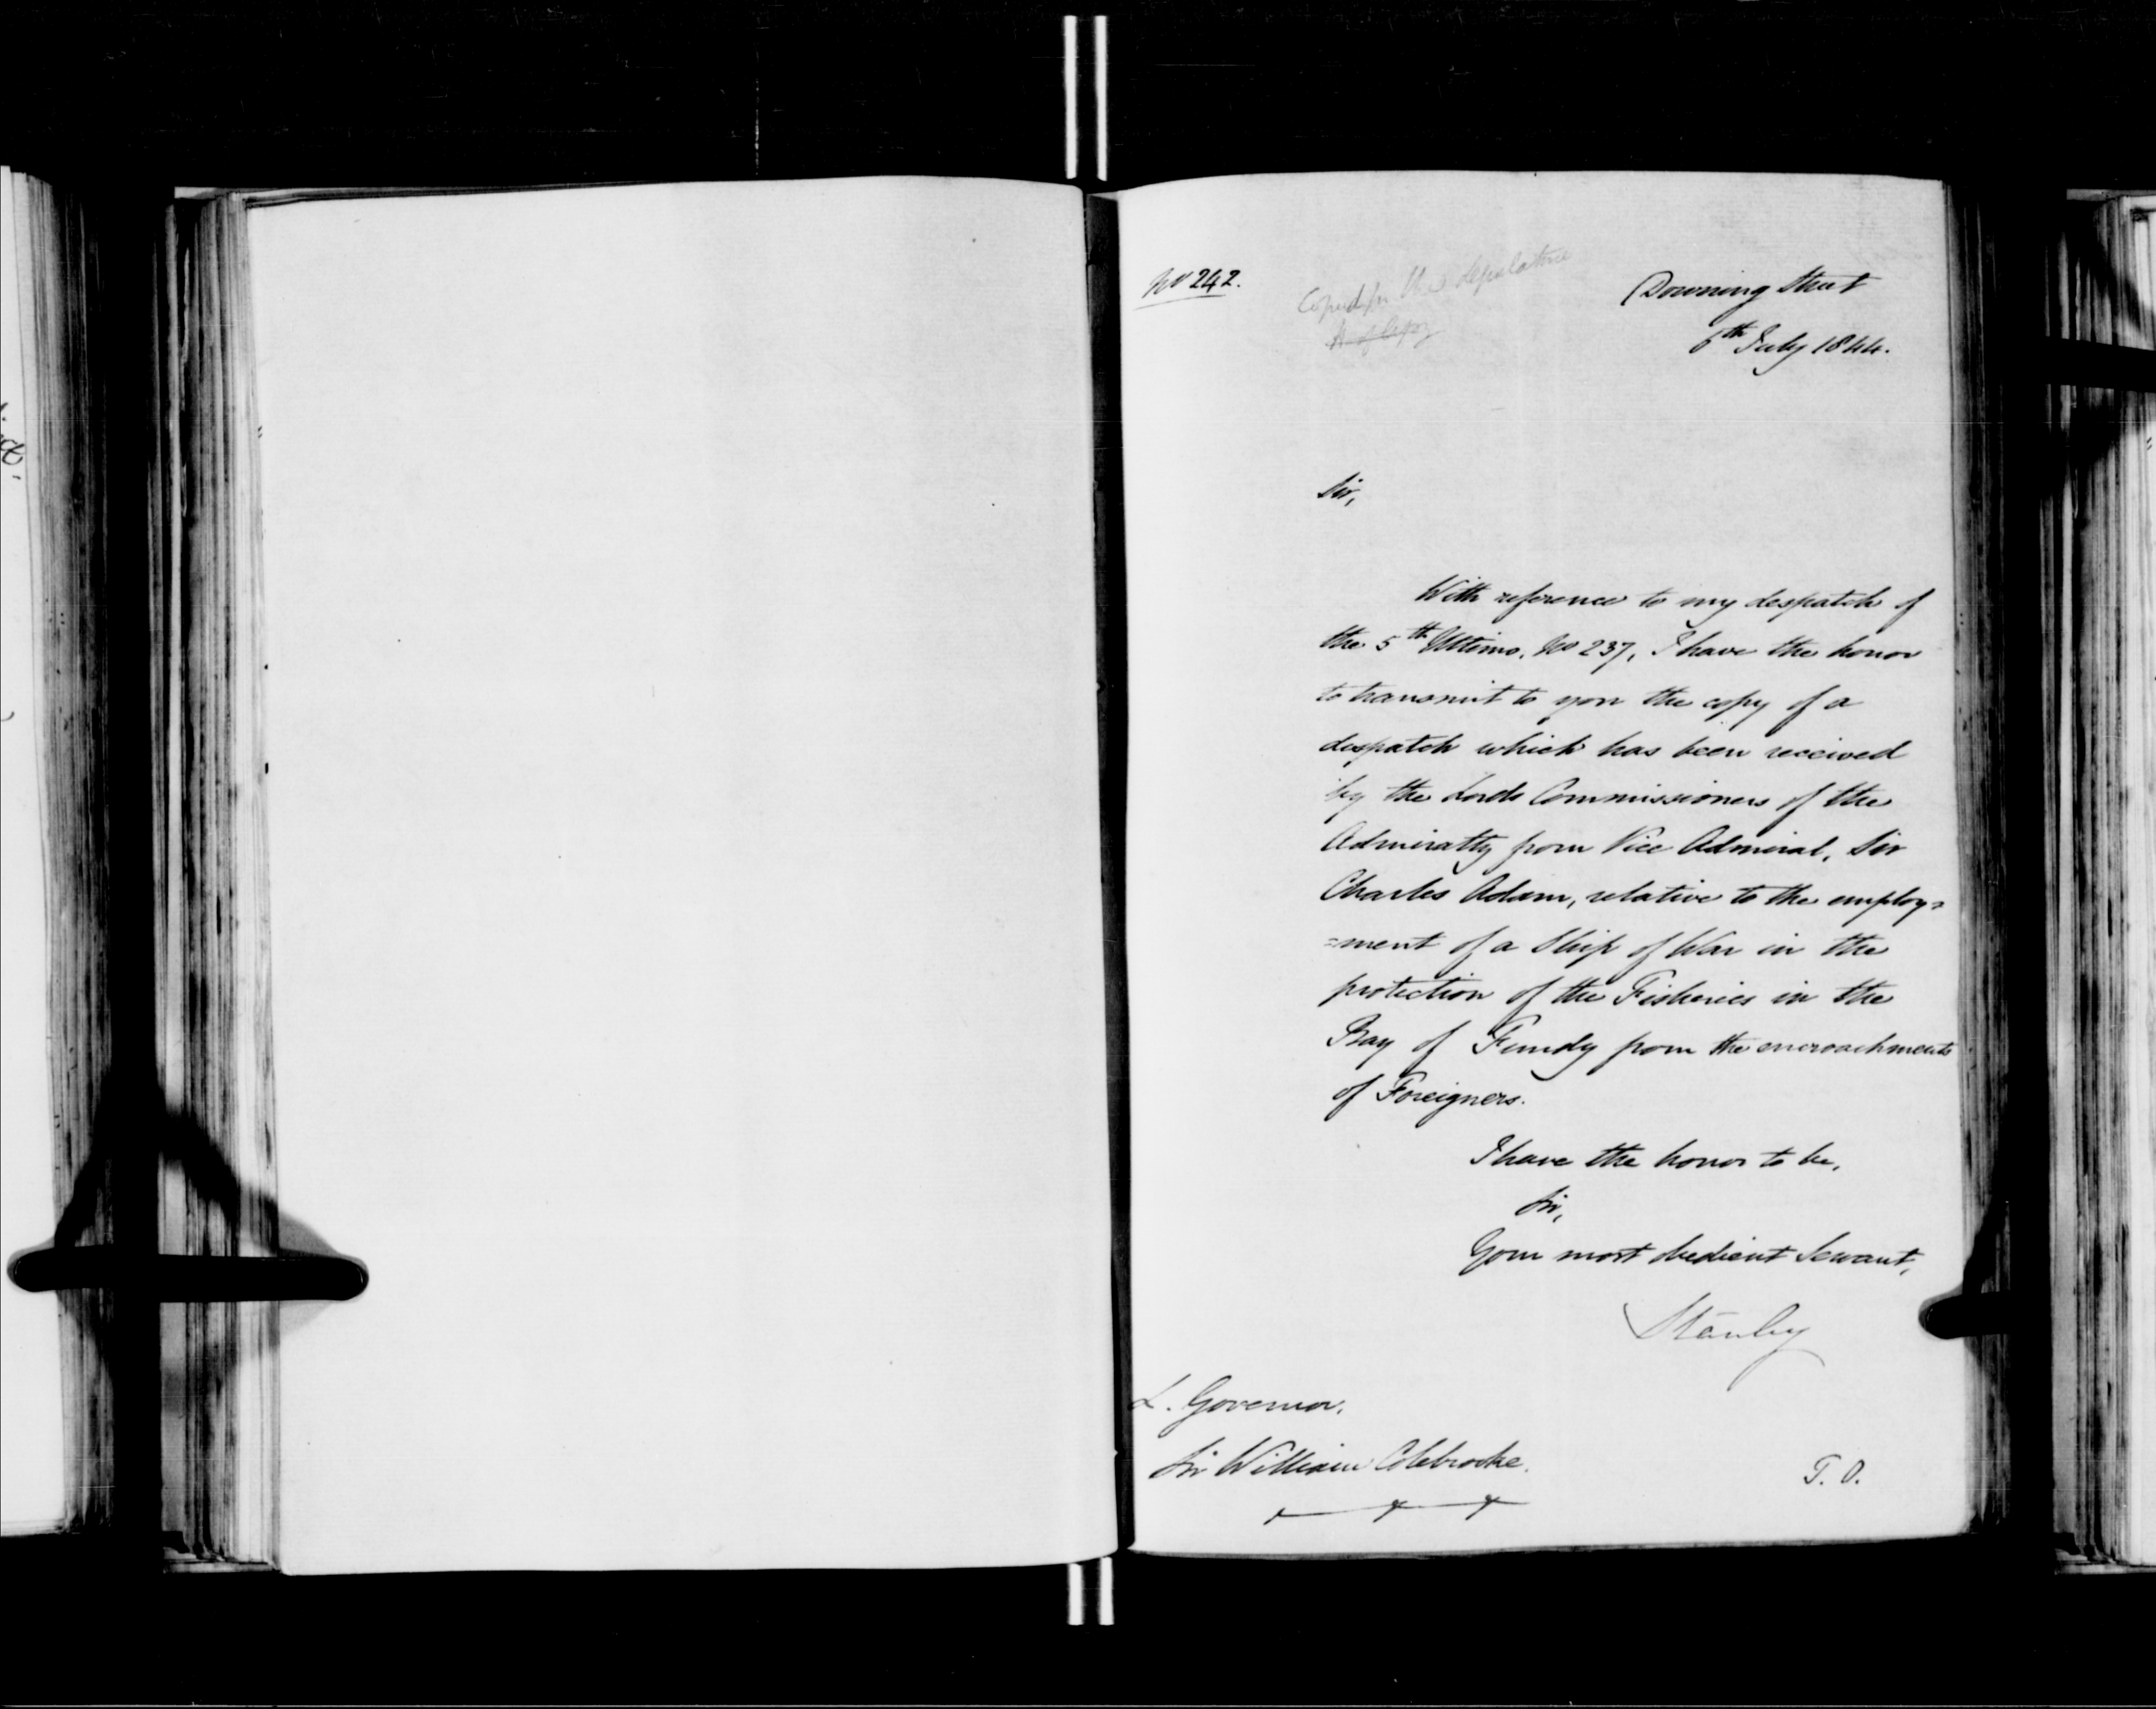 No 242.
Copied for the Legislature
H. of
Downing Street
6th July 1844.
Sir,
With reference to my despatch of
the 5th Ultimo, No 237, I have the honor
to transmit to you the copy of a
despatch which has been received
by the Lords Commissioners of the
Admiralty from Vice Admiral, Sir
Charles Adam, relative to the employ=
=ment of a Ship of War in the
protection of the Fisheries in the
Bay of Fundy from the encroachments
of Foreigners.
I have the honor to be,
Sir,
Your most obedient Servant,
Stanley
L. Governor.
Sir William Colebrooke.
T. O.